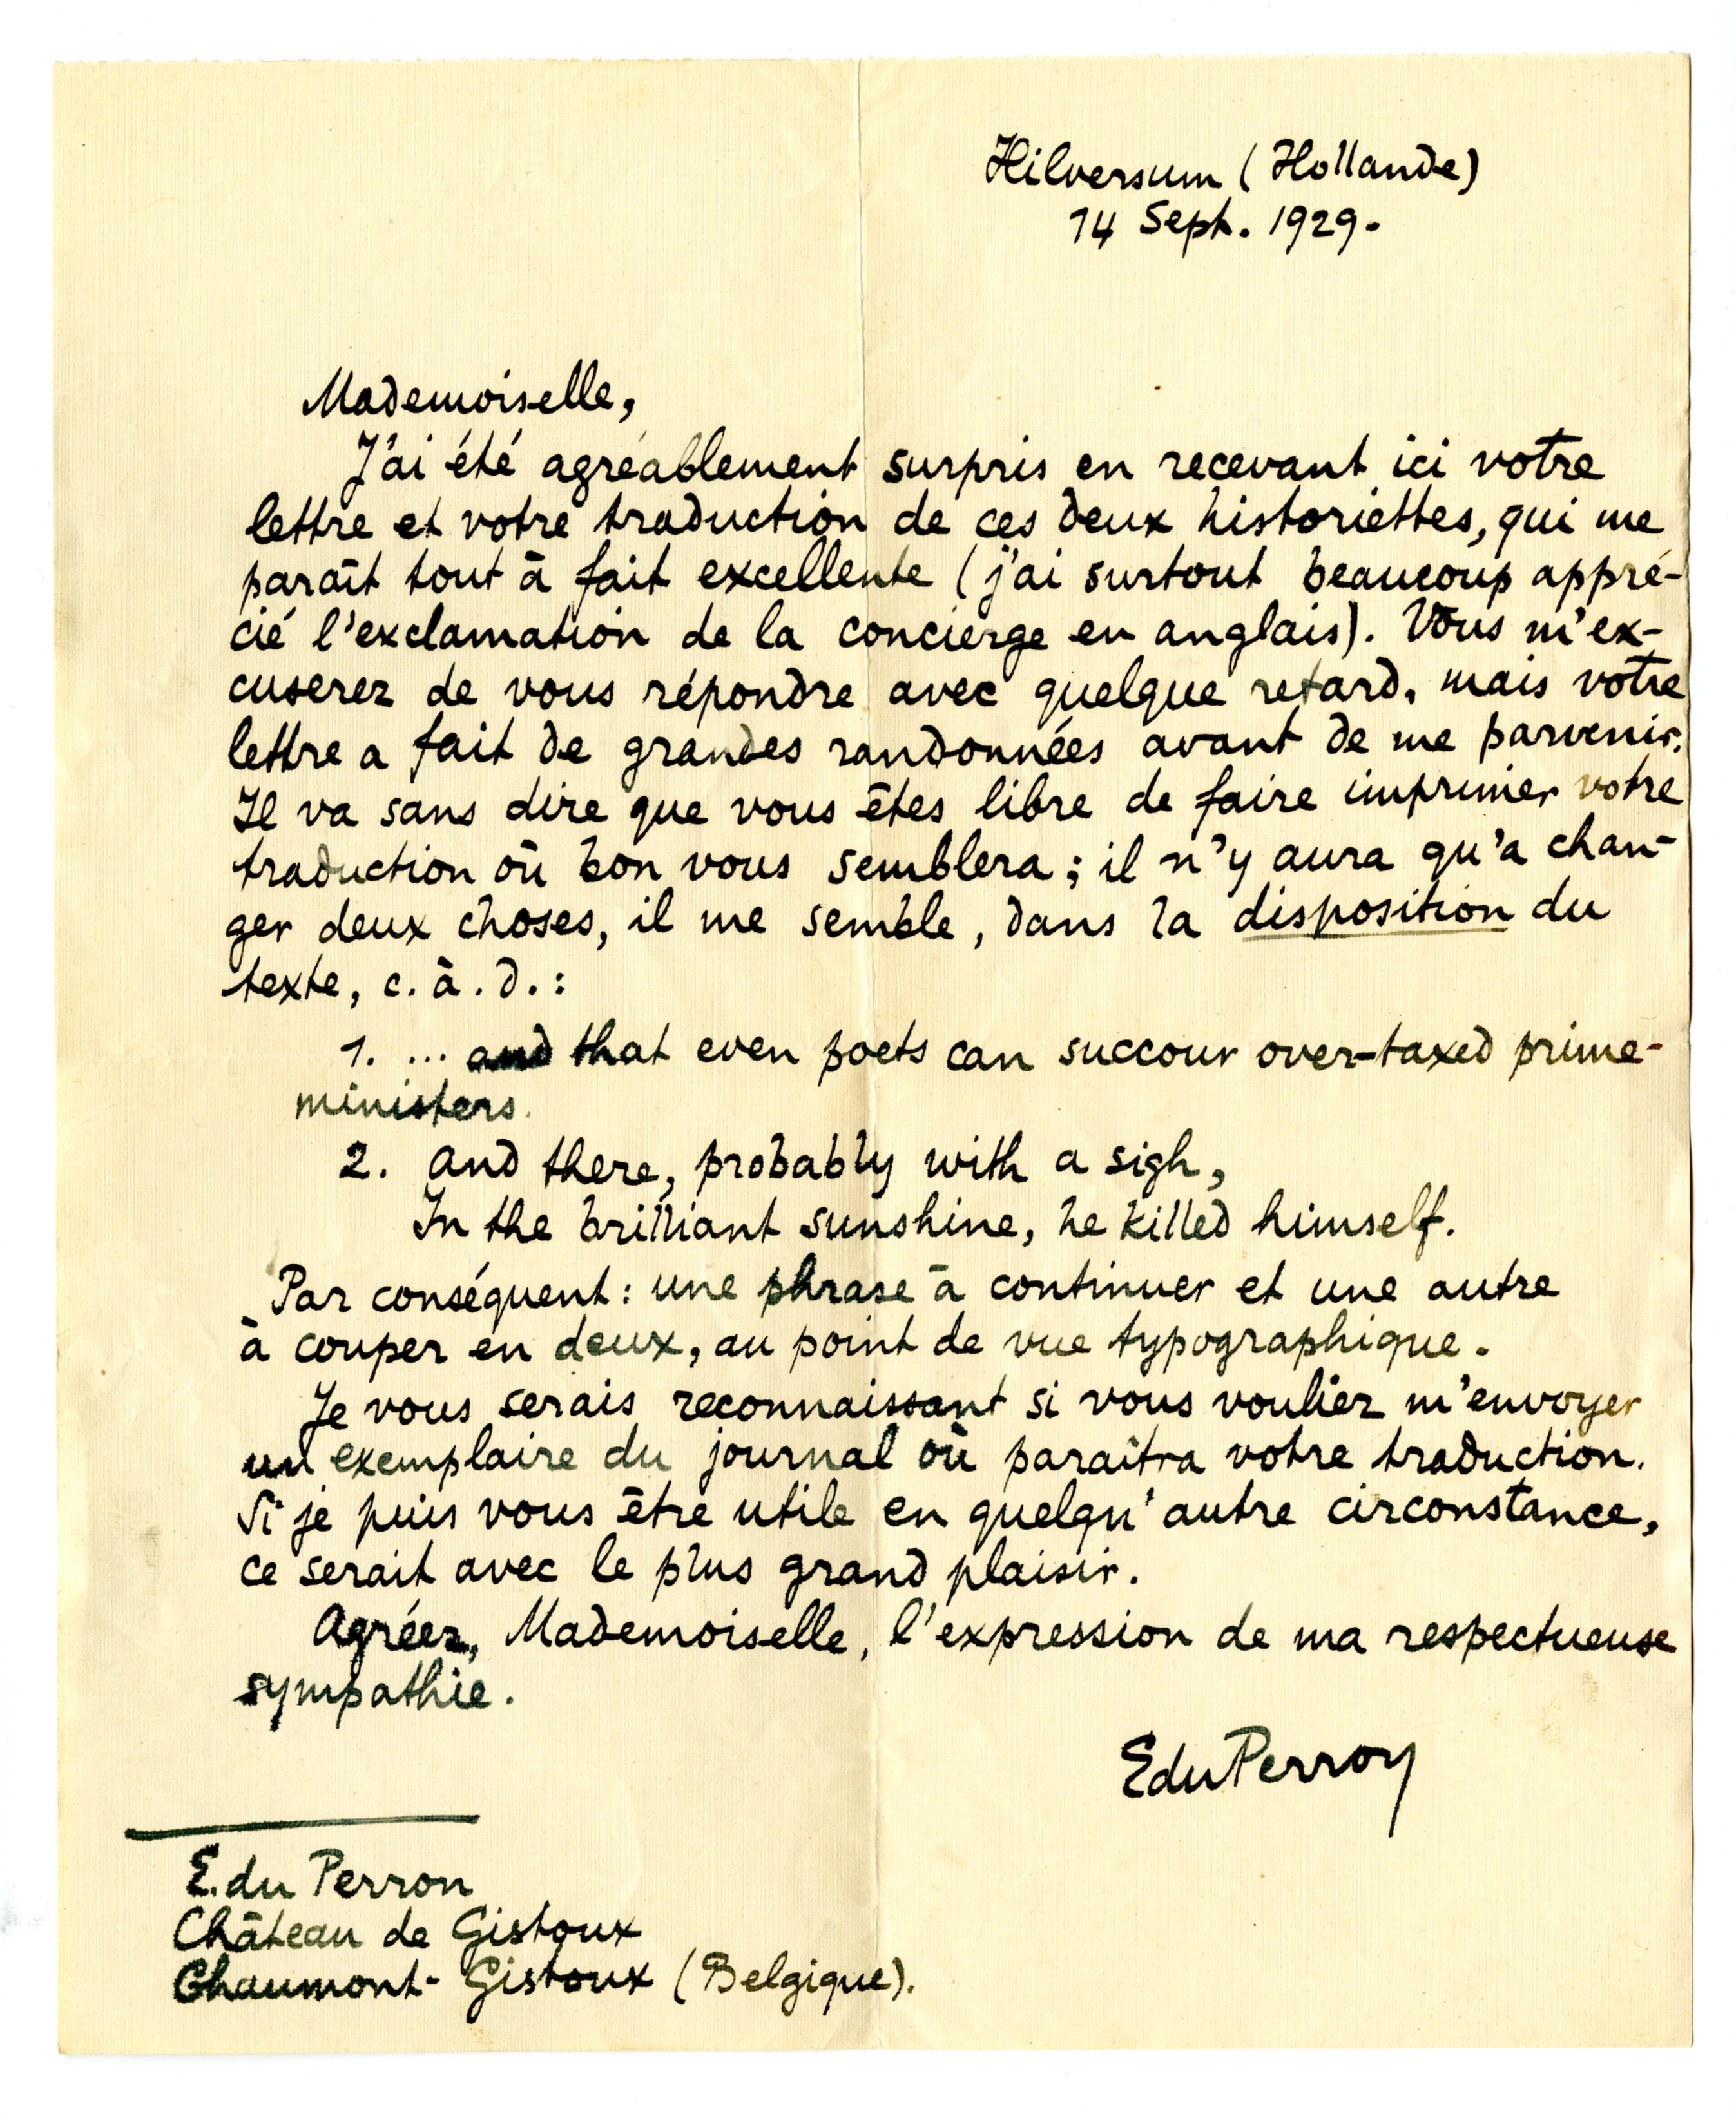 Hilversum (Hollande)
14 Sept. 1929.
Mademoiselle,
J'ai été agréablement surpris en recevant ici votre
lettre et votre traduction de ces deux historiettes, qui me
paraît tout à fait excellente (j'ai surtout beaucoup appré-
cié l'exclamation de la concierge en anglais). Vous m'ex-
cuserez de vous répondre avec quelque retard, mais votre
lettre a fait de grandes randonnées avant de me parvenir.
Il va sans dire que vous êtes libre de faire imprimer votre
traduction où bon vous semblera; il n'y aura qu'a chan-
ger deux choses, il me semble, dans la disposition du
texte, c.à.d.:
1. ... and that even poets can succour over-taxed prime-
ministers.
2. and there, probably with a sigh,
In the brilliant sunshine, he killed himself.
Par conséquent: une phrase à continuer et une autre
à couper en deux, au point de vue typographique.
Je vous serais reconnaissant si vous vouliez m'envoyer
un exemplaire du journal où paraîtra votre traduction.
Si je puis vous être utile en quelqu'autre circonstance,
ce serait avec le plus grand plaisir.
Agréez, Mademoiselle, l'expression de ma respectueuse
sympathie.
EduPerron
E. du Perron
Château de Gistoux
Chaumont-Gistoux (Belgique).